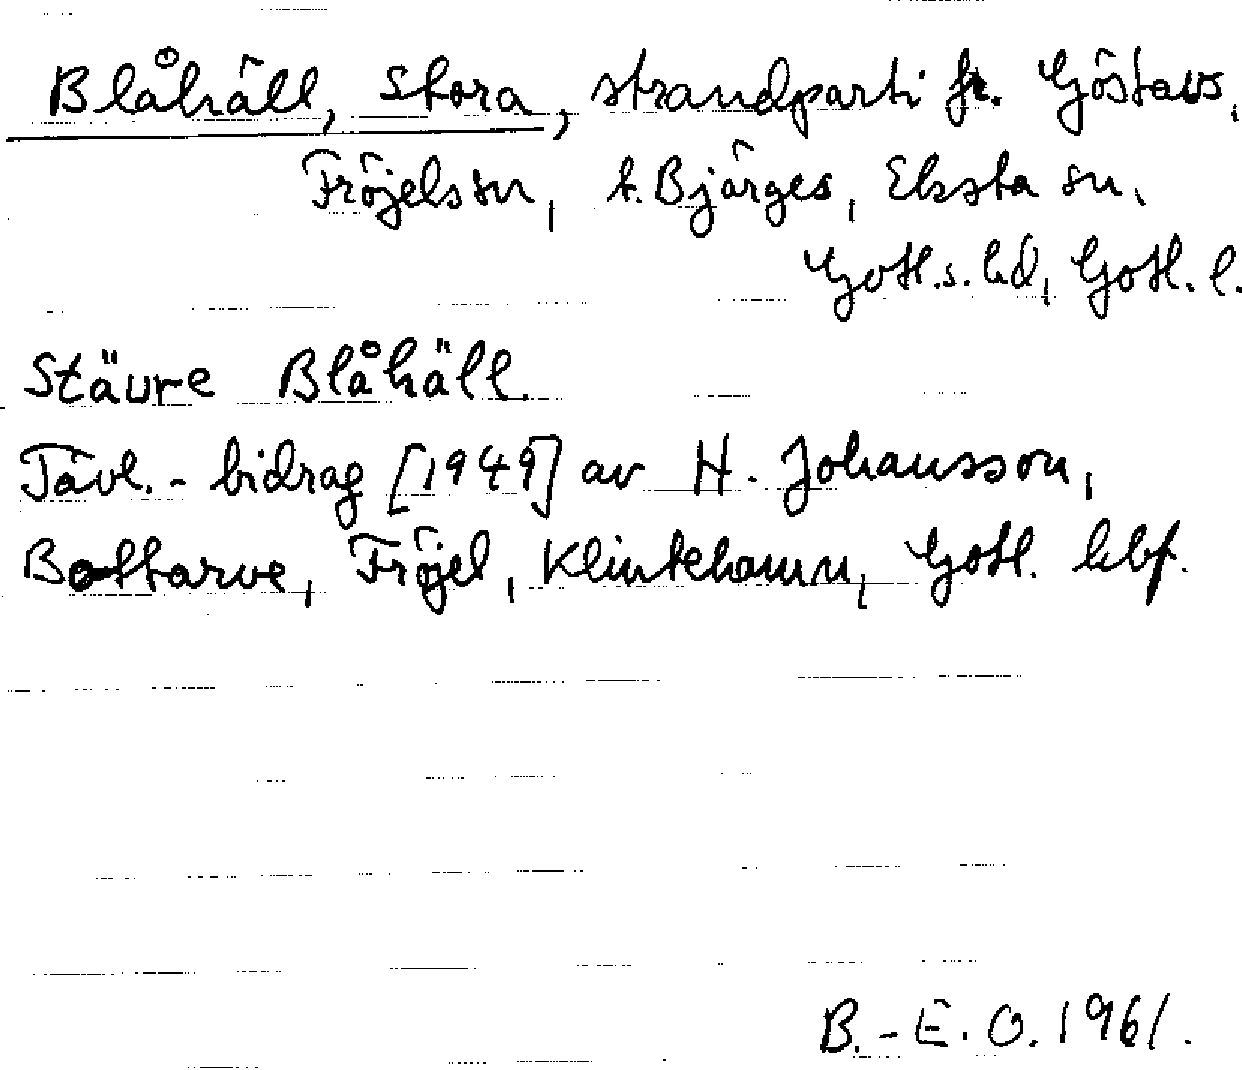 Blåhäll, Stora, strandparti fr. Göstavs,
Fröjels sn, t. Bjärges, Eksta sn.
Gotl.s. hd, Gotl. l.
Stäure Blåhäll.
Tävl.-bidrag [1949] av H. Johansson,
Bottarve, Fröjel, Klintehamn, Gotl. hbf.
B.-E. O. 1961.